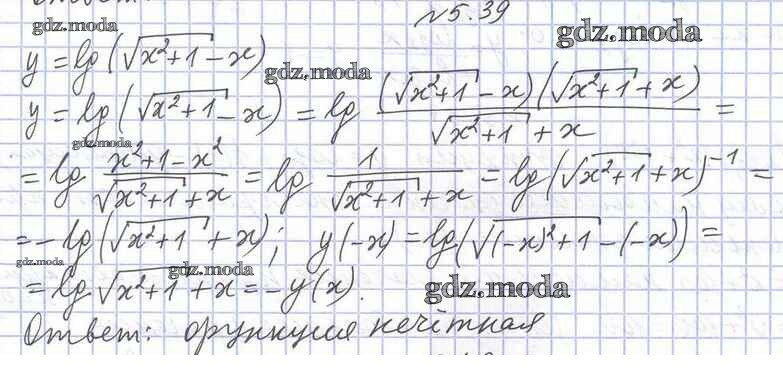 №5.39
gdz.moda
gdz.moda
y = lg(√(x²+1) - x)
gdz.moda
y = lg(√(x²+1) - x) = lg ((√(x²+1) - x)(√(x²+1) + x)) / (√(x²+1) + x) =
gdz.moda
= lg (x²+1-x²) / (√(x²+1) + x) = lg 1 / (√(x²+1) + x) = lg(√(x²+1) + x)⁻¹ =
= -lg(√(x²+1) + x); y(-x) = lg(√((-x)²+1) - (-x)) =
gdz.moda
gdz.moda
= lg √(x²+1) + x = -y(x).
gdz.moda
Ответ: функция нечётная